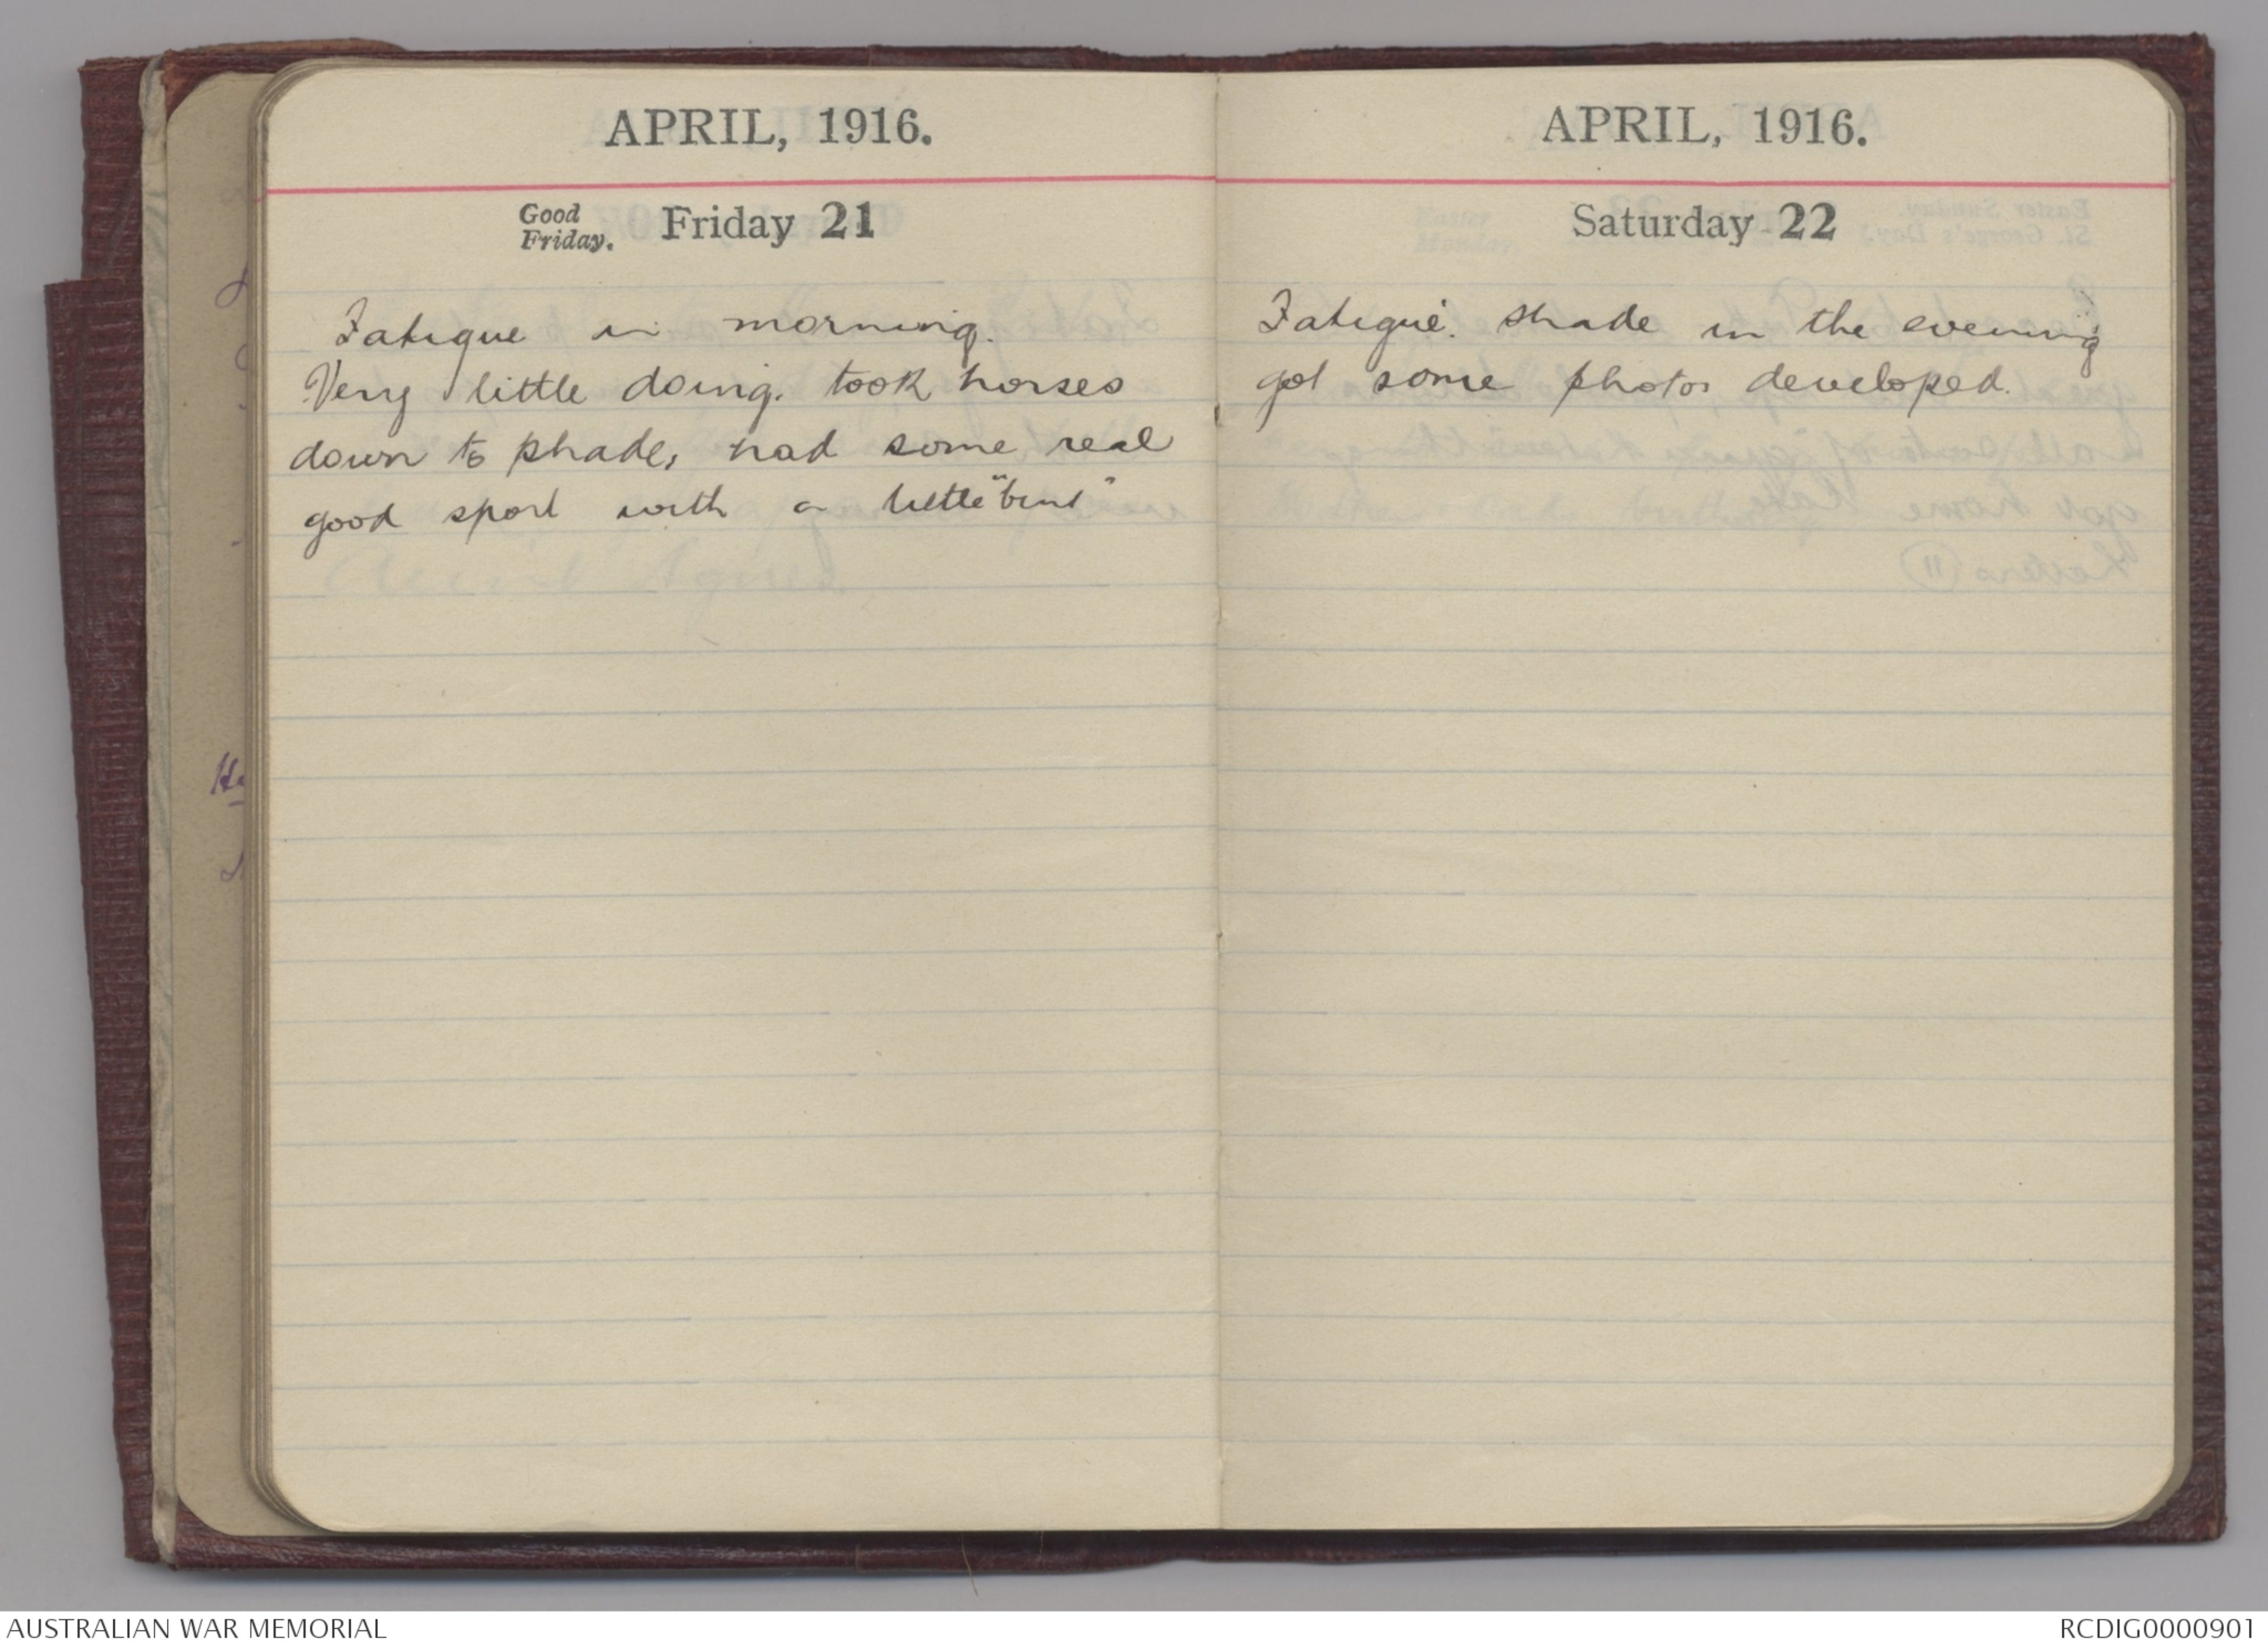 APRIL, 1916.
Good Friday. Friday 21
Fatigue in morning.
Very little doing. took horses
down to shade, had some real
good sport with a little "bint"
APRIL, 1916.
Saturday 22
Fatigue. shade in the evening
got some photos developed.
AUSTRALIAN WAR MEMORIAL
RCDIG0000901